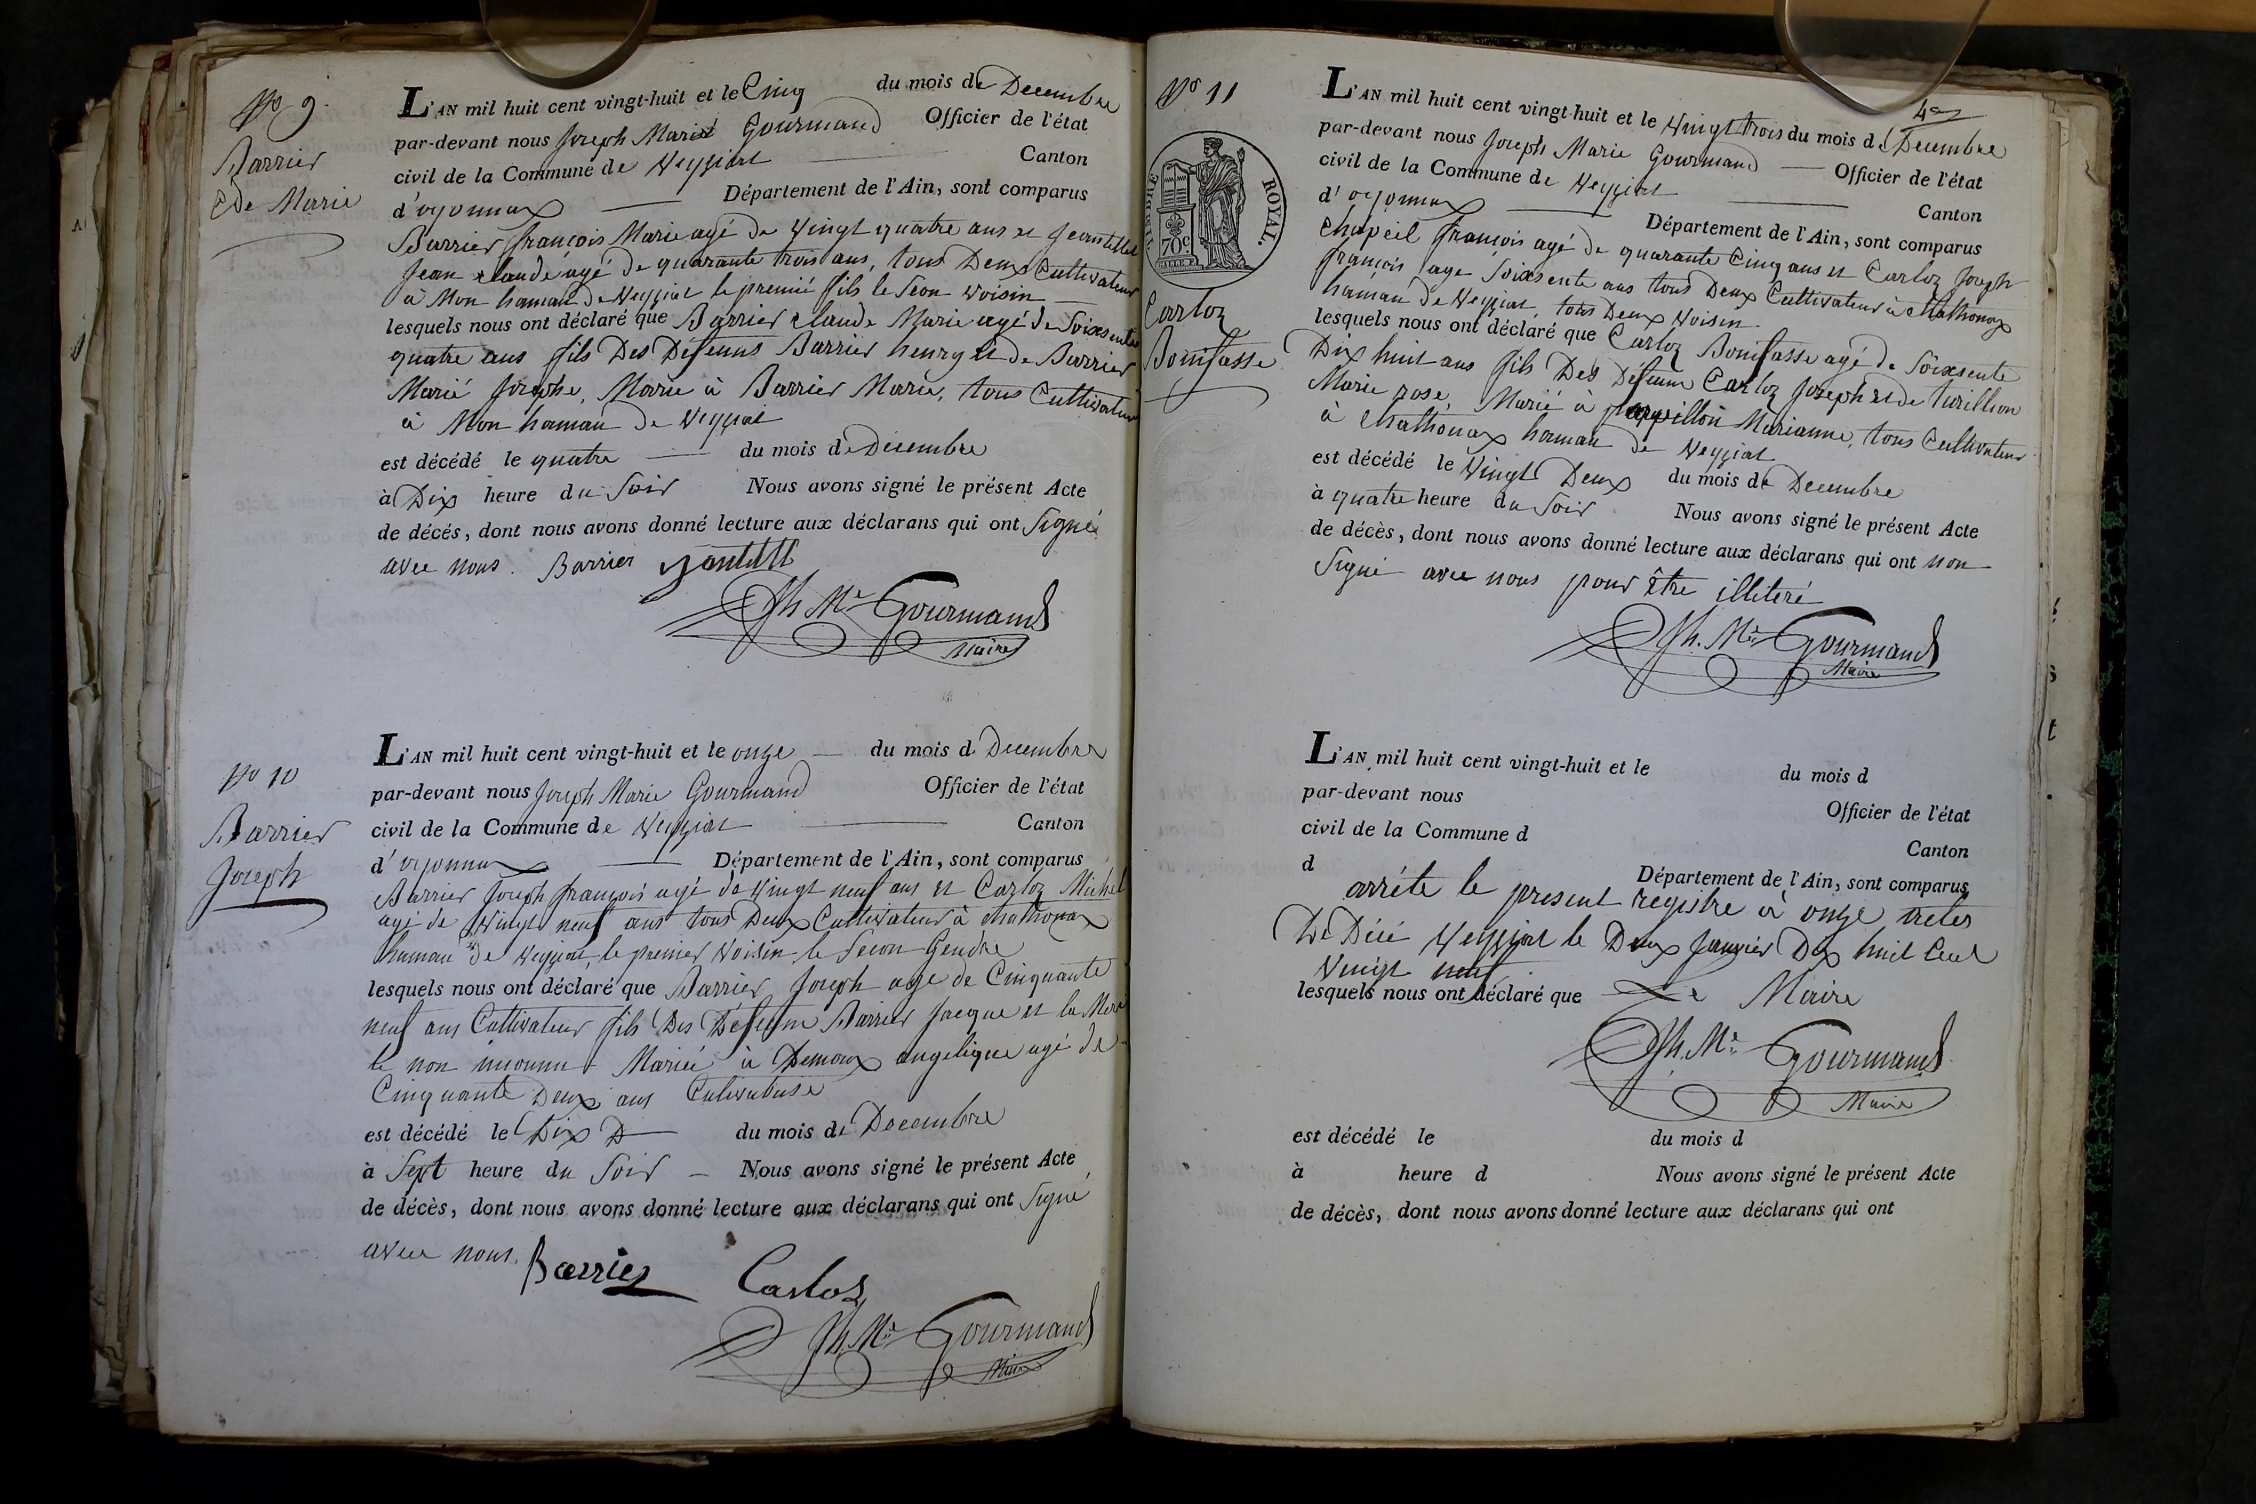 No 9.
Barrier
Cde Marie
L'AN mil huit cent vingt-huit et le Cinq du mois de Decembre
par-devant nous Joseph Marie Gourmand Officier de l'état
civil de la Commune de Veyziat Canton
d'oyonnax Département de l'Ain, sont comparus
Barrier françois Marie agé de Vingt quatre ans et
Jean claude agé de quarante trois ans, tous Deux Cultivateur
à Mon hamau de Veyziat le premié fils le Seon Voisin
lesquels nous ont déclaré que Barrier claude Marie agé de Soixsente
quatre ans fils Des Défunns Barrier henry et de Barrier
Marié Josephe, Marie à Barrier Marie, tous Cultivateur
à Mon hamau de Veyziat
est décédé le quatre du mois de Décembre
à Dix heure du Soir Nous avons signé le présent Acte
de décés, dont nous avons donné lecture aux déclarans qui ont Signé
avec nous. Barrier
Jh Me Gourmand
Maire
No 10
Barrier
Joseph
L'AN mil huit cent vingt-huit et le onze du mois d Decembre
par-devant nous Joseph Marie Gourmand Officier de l'état
civil de la Commune de Veyziat Canton
d'oyonnax Département de l'Ain, sont comparus
Barrier Joseph françois agé de Vingt neuf ans et Carloz Michel
agé de Vingt neuf ans tous Deux Cultivateur à chathonax
hamau de Veyziat, le premier Voisin le Seon Gendre
lesquels nous ont déclaré que Barrier Joseph age de Cinquante
neuf ans Cultivateur fils Des Défunn Barrier Jacque et la Mere
le non inconnu Marié à Demoux angelique agé de
Cinquante Deux ans Cultivateuse
est décédé le Dix du mois de Decembre
à Sept heure du Soir Nous avons signé le présent Acte
de décès, dont nous avons donné lecture aux déclarans qui ont Signé
avec nous. Barrier Carloz
Jh. Me Gourmand
Maire
No 11
TIMBRE ROYAL.
70c
Carloz
Bonifasse
4e
L'AN mil huit cent vingt-huit et le Vingt trois du mois de Decembre
par-devant nous Joseph Marie Gourmand Officier de l'état
civil de la Commune de Veyziat Canton
d'oyonnax Département de l'Ain, sont comparus
Chapeil françois agé de quarante Cinq ans et Carloz Joseph
françois age Soixsente ans tous Deux Cultivateur à chathonax
hamau de Veyziat, tous Deux Voisin
lesquels nous ont déclaré que Carloz Bonifasse agé de Soixsente
Dix huit ans fils Des Défunn Carloz Joseph et de turillion
Marie rose, Marié à Marianne, tous Cultivateur
à chathonax hamau de Veyziat
est décédé le Vingt Deux du mois de Decembre
à quatre heure du Soir Nous avons signé le présent Acte
de décès, dont nous avons donné lecture aux déclarans qui ont non
Signé avec nous pour être illiteré
Jh. Me Gourmand
Maire
L'AN mil huit cent vingt-huit et le du mois d
par-devant nous Officier de l'état
civil de la Commune d Canton
d Département de l'Ain, sont comparus
arréte le present registre à onze actes
De Décé Veyziat le Deux Janvier Dix huit Cent
Vingt neuf
lesquels nous ont déclaré que Le Maire
Jh. Me Gourmand
Maire
est décédé le du mois d
à heure d Nous avons signé le présent Acte
de décès, dont nous avons donné lecture aux déclarans qui ont